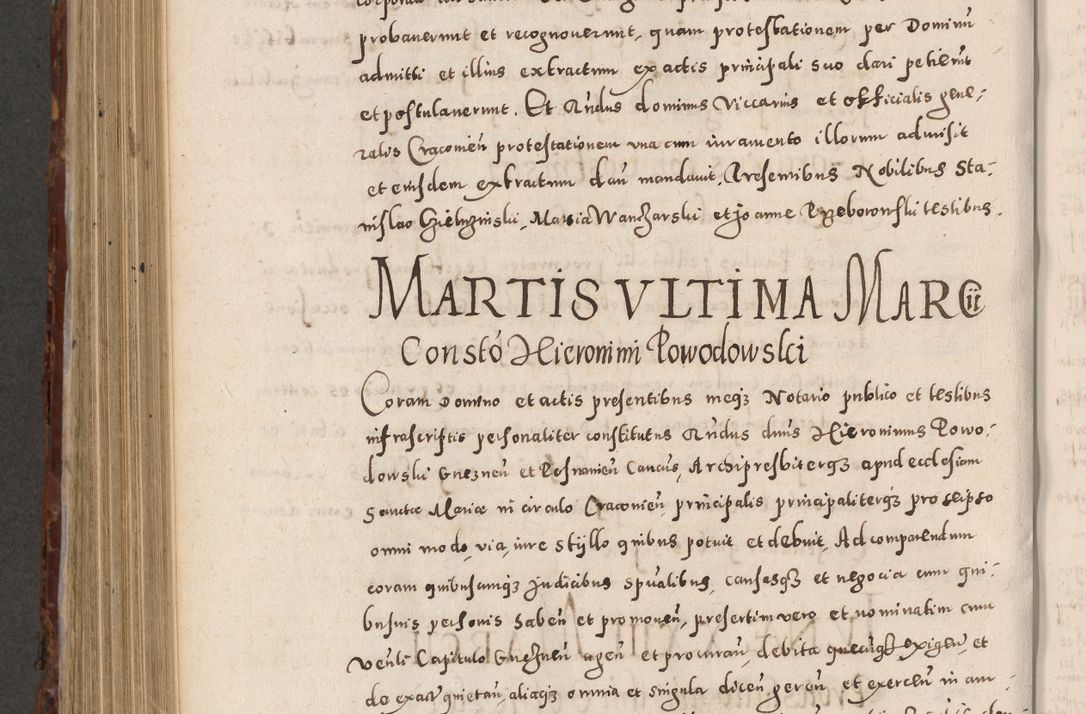 probaverunt et recognoverunt, quam protestationem per Dominū
admitti et illius extractum ex actis principali suo dari petierūt
et postulaverunt. Et Rn̄dus dominus Viccarius et officialis gene-
ralis Cracovien̄ protestationem vna cum iuramento illorum admisit
et eiusdem extractum dari mandavit. Presentibus Nobilibus Sta-
nislao Matia Wanczarski et Joanne testibus.
MARTIS VLTIMA MARCii
Constō Hieronimi Powodowski
Coram Domino et actis presentibus meq3 Notario publico et testibus
infrascriptis personaliter constitutus Rn̄dus dn̄s Hieronimus Powo-
dowski Gneznen̄ et Posnanien̄ Canc̄us, Archipresbiterq3 apud ecclesiam
Sanctæ Mariæ in circulo Cracovien̄, principalis principaliterq3 pro seipso
omni modo, via, iure styllo quibus potuit et debuit, Ad comparendum
coram quibuscunq3 Judicibus spūalibus, causasq3 et negocia cum qui-
busuis personis haben̄ et promoven̄, presertim vero et nominatim cum
Ven̄li Capitulo Gneznen̄ agen̄ et procuran̄, debita exigen̄, et
de exact quietan̄, aliaq3 omnia et singula dicen̄, geren̄ et exercen̄ in am-